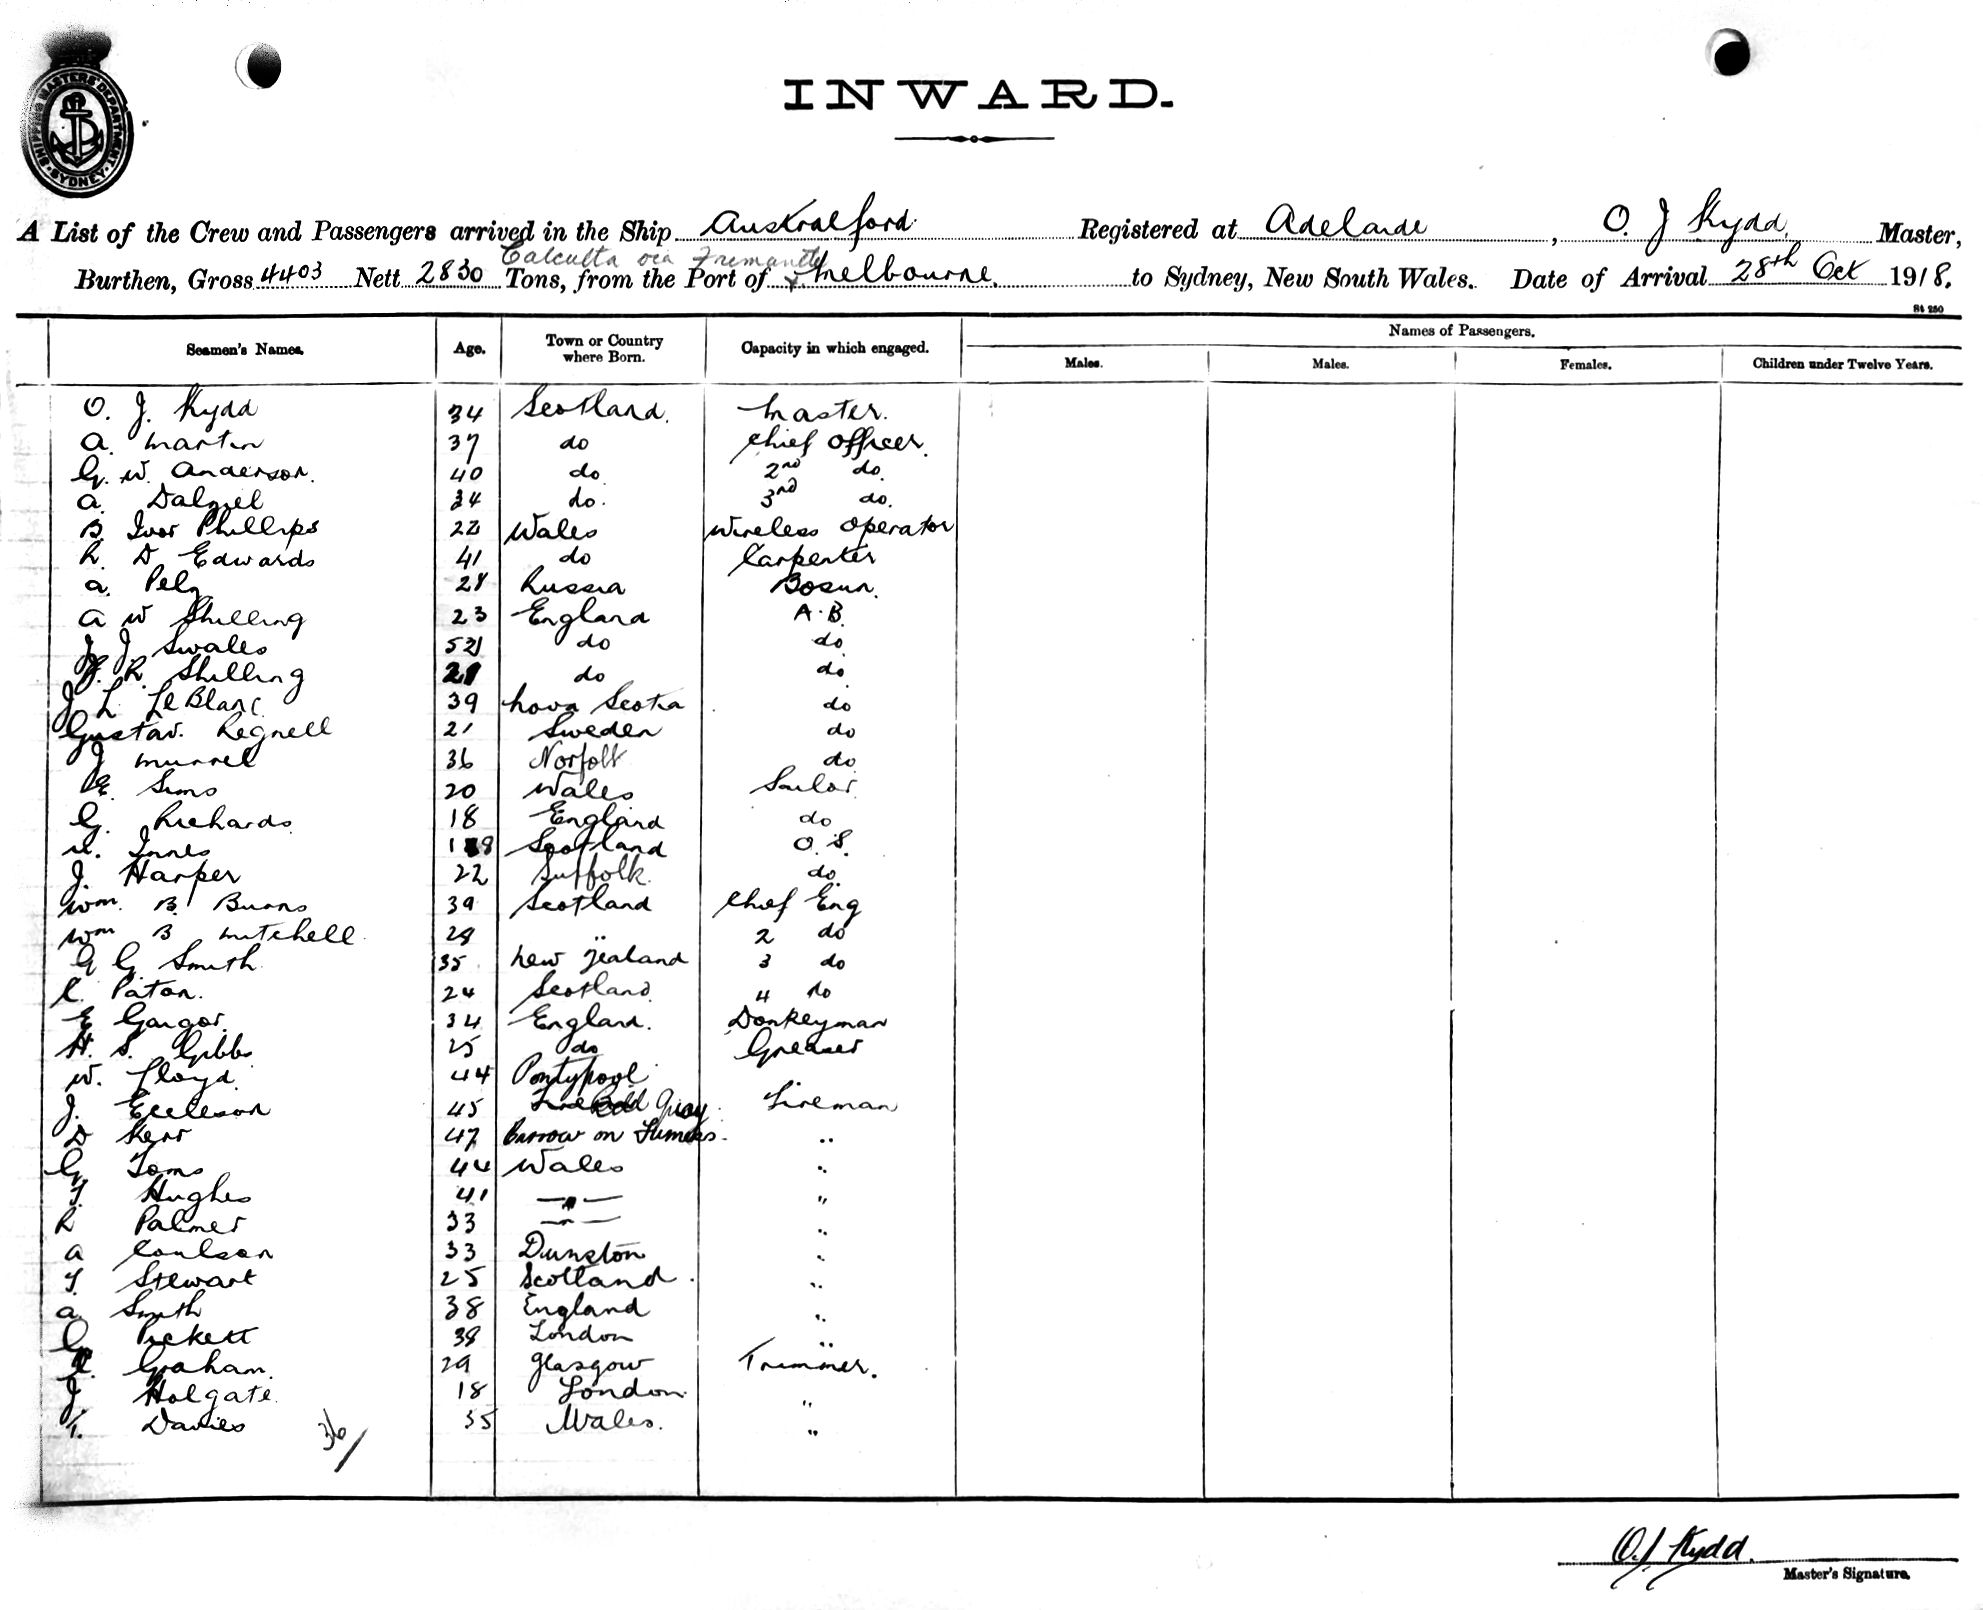 SHIPPING MASTERS' DEPARTMENT
SYDNEY
INWARD.
A List of the Crew and Passengers arrived in the Ship Australford Registered at Adelaide, O. J Kydd, Master,
Calcutta via Fremantle
Burthen, Gross 4403 Nett 2830 Tons, from the Port of & Melbourne. to Sydney, New South Wales. Date of Arrival 28th Oct 1918.
St 250
Seamen's Names. Age. Town or Country where Born. Capacity in which engaged. Names of Passengers.
Males. Males. Females. Children under Twelve Years.
O. J. Kydd 34 Scotland. Master.
A. Martin 37 do Chief Officer.
G. W. Anderson. 40 do 2nd do.
A. Dalziel 34 do. 3rd do.
B. Ivor Phillips 22 Wales Wireless Operator
R. D Edwards 41 do Carpenter
A. Pelz 28 Russia Bosun.
A W Shilling 23 England A.B.
J. J. Swales 52 do do
R. Shilling 21 do do
J L LeBlanc 39 Nova Scotia do
Gustav. Regnell 21 Sweden do
J Murrel 36 Norfolk do
E. Sims 20 Wales Sailor
G. Richards 18 England do
Innes 18 Scotland O.S.
J. Harper 22 Suffolk. do.
Wm. B. Burns 39 Scotland Chief Eng
Wm B Mitchell. 28 .. 2 do
G G. Smith 35 New Zealand 3 do
C. Paton. 24 Scotland. 4 do
E Gargor. 34 England. Donkeyman
H. S. Gibbs 25 do Greaser
W. Lloyd. 44 Pontypool
J. Eccleson 45 Quay Fireman
D Kerr 47 Barrow on Furness. ..
G Toms 44 Wales ..
T. Hughes 41 —"— "
R Palmer 33 —"— ..
A Coulson 33 Dunston ..
T. Stewart 25 Scotland. ..
A. Smith 38 England ..
G. Pickett 38 London ..
Graham. 29 Glasgow Trimmer.
J Holgate. 18 London. "
T. Davies 35 Wales. "
36/
O. J. Kydd.
Master's Signature.